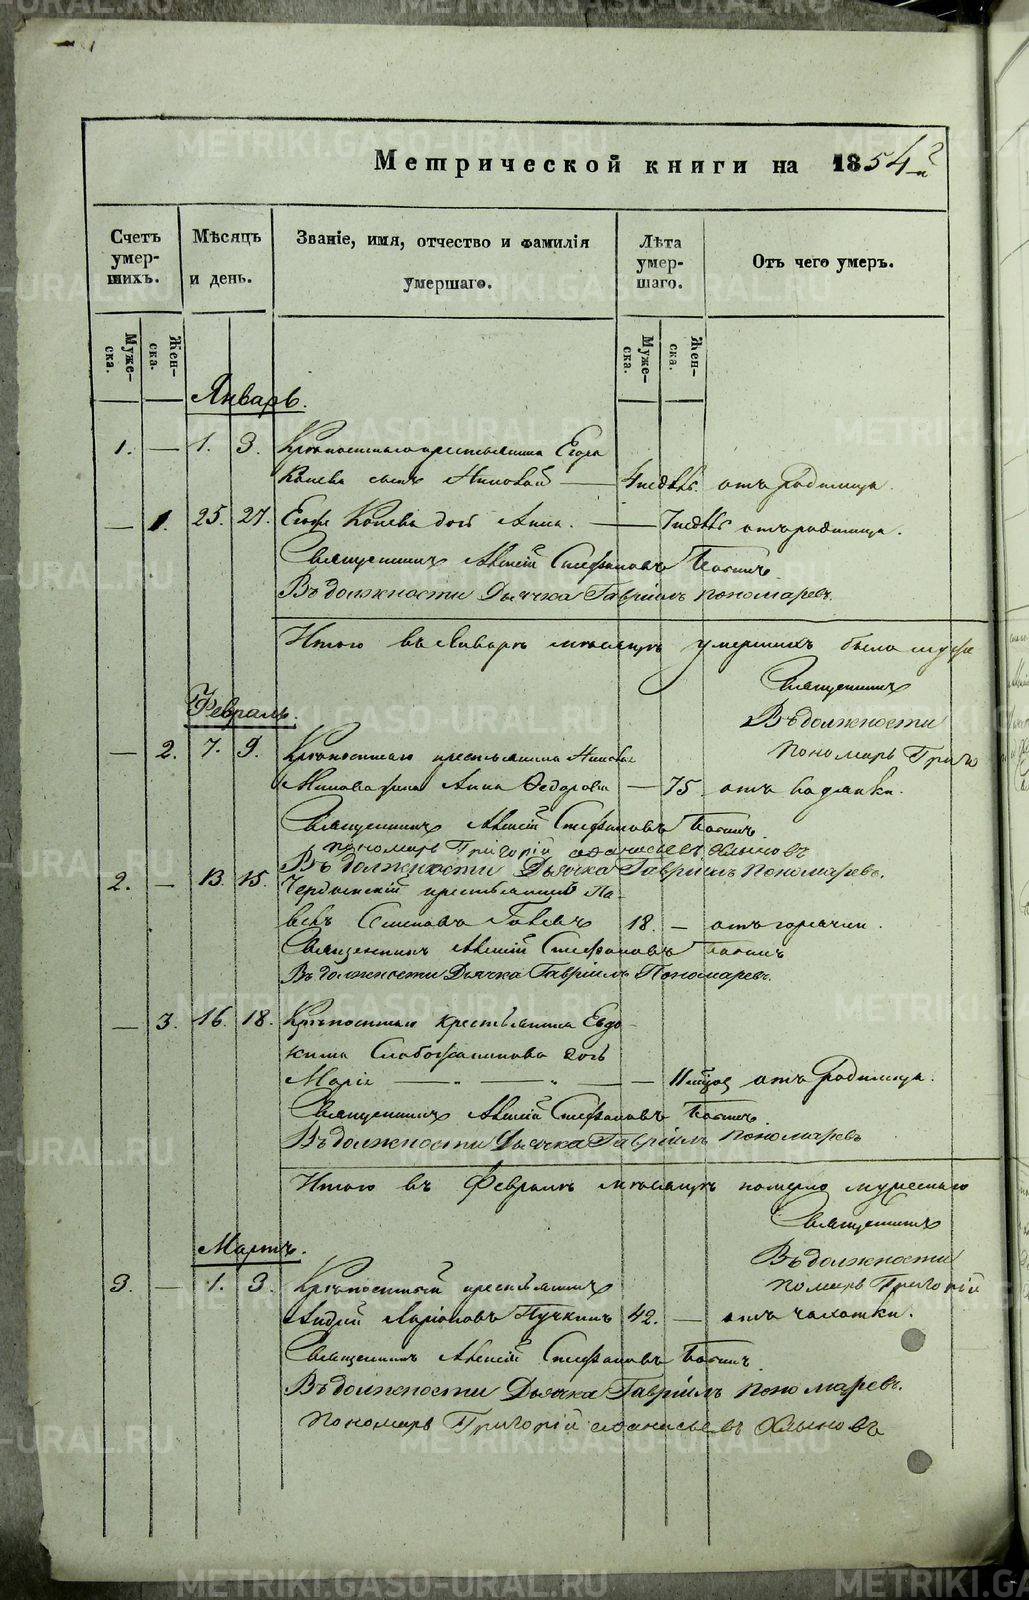 METRIKI.GASO-URAL.RU
Метрической книги на 1854й
Счетъ умер- шихъ.
Мѣсяцъ и день.
Званіе, имя, отчество и фамилія умершаго.
Лѣта умер- шаго.
Отъ чего умеръ.
Муже- ска.
Жен- ска.
Муже- ска.
Жен- ска.
Январь.
1. — 1. 3. Крѣпостнаго крестьянина Егора
сынъ — отъ родимца.
— 1. 25. 27. дочь Анна. — отъ родимца.
Священникъ Алексій Стефановъ
Въ должности Дьячка Гавріилъ Пономаревъ.
Итого въ Январѣ мѣсяцѣ умершихъ было муже
Священникъ
Въ должности
Февраль.
Пономарь Григо
— 2. 7. 9. Крѣпостнаго крестьянина
жена Анна Федорова — 75. отъ водянки.
Священникъ Алексій Стефановъ
Пономарь Григорій Афанасьевъ Хлыновъ
Въ должности Дьячка Гавріилъ Пономаревъ.
2. — 13. 15. Чердынскій крестьянинъ Па-
велъ 18. — отъ горячки.
Священникъ Алексій Стефановъ
Въ должности Дьячка Гавріилъ Пономаревъ.
— 3. 16. 18. Крѣпостнаго крестьянина Евдо-
кима дочь
Марія — „ — „ — — 11 отъ родимца.
Священникъ Алексій Стефановъ
Въ должности Дьячка Гавріилъ Пономаревъ
Итого въ Февралѣ мѣсяцѣ померло мужескаго
Священникъ
Въ должности
Мартъ.
Григорій
3. — 1. 3. Крѣпостный крестьянинъ
Андрей Ларіоновъ Пучкинъ 42. — отъ чахотки.
Священникъ Алексій Стефановъ
Въ должности Дьячка Гавріилъ Пономаревъ.
Пономарь Григорій Афанасьевъ Хлыновъ